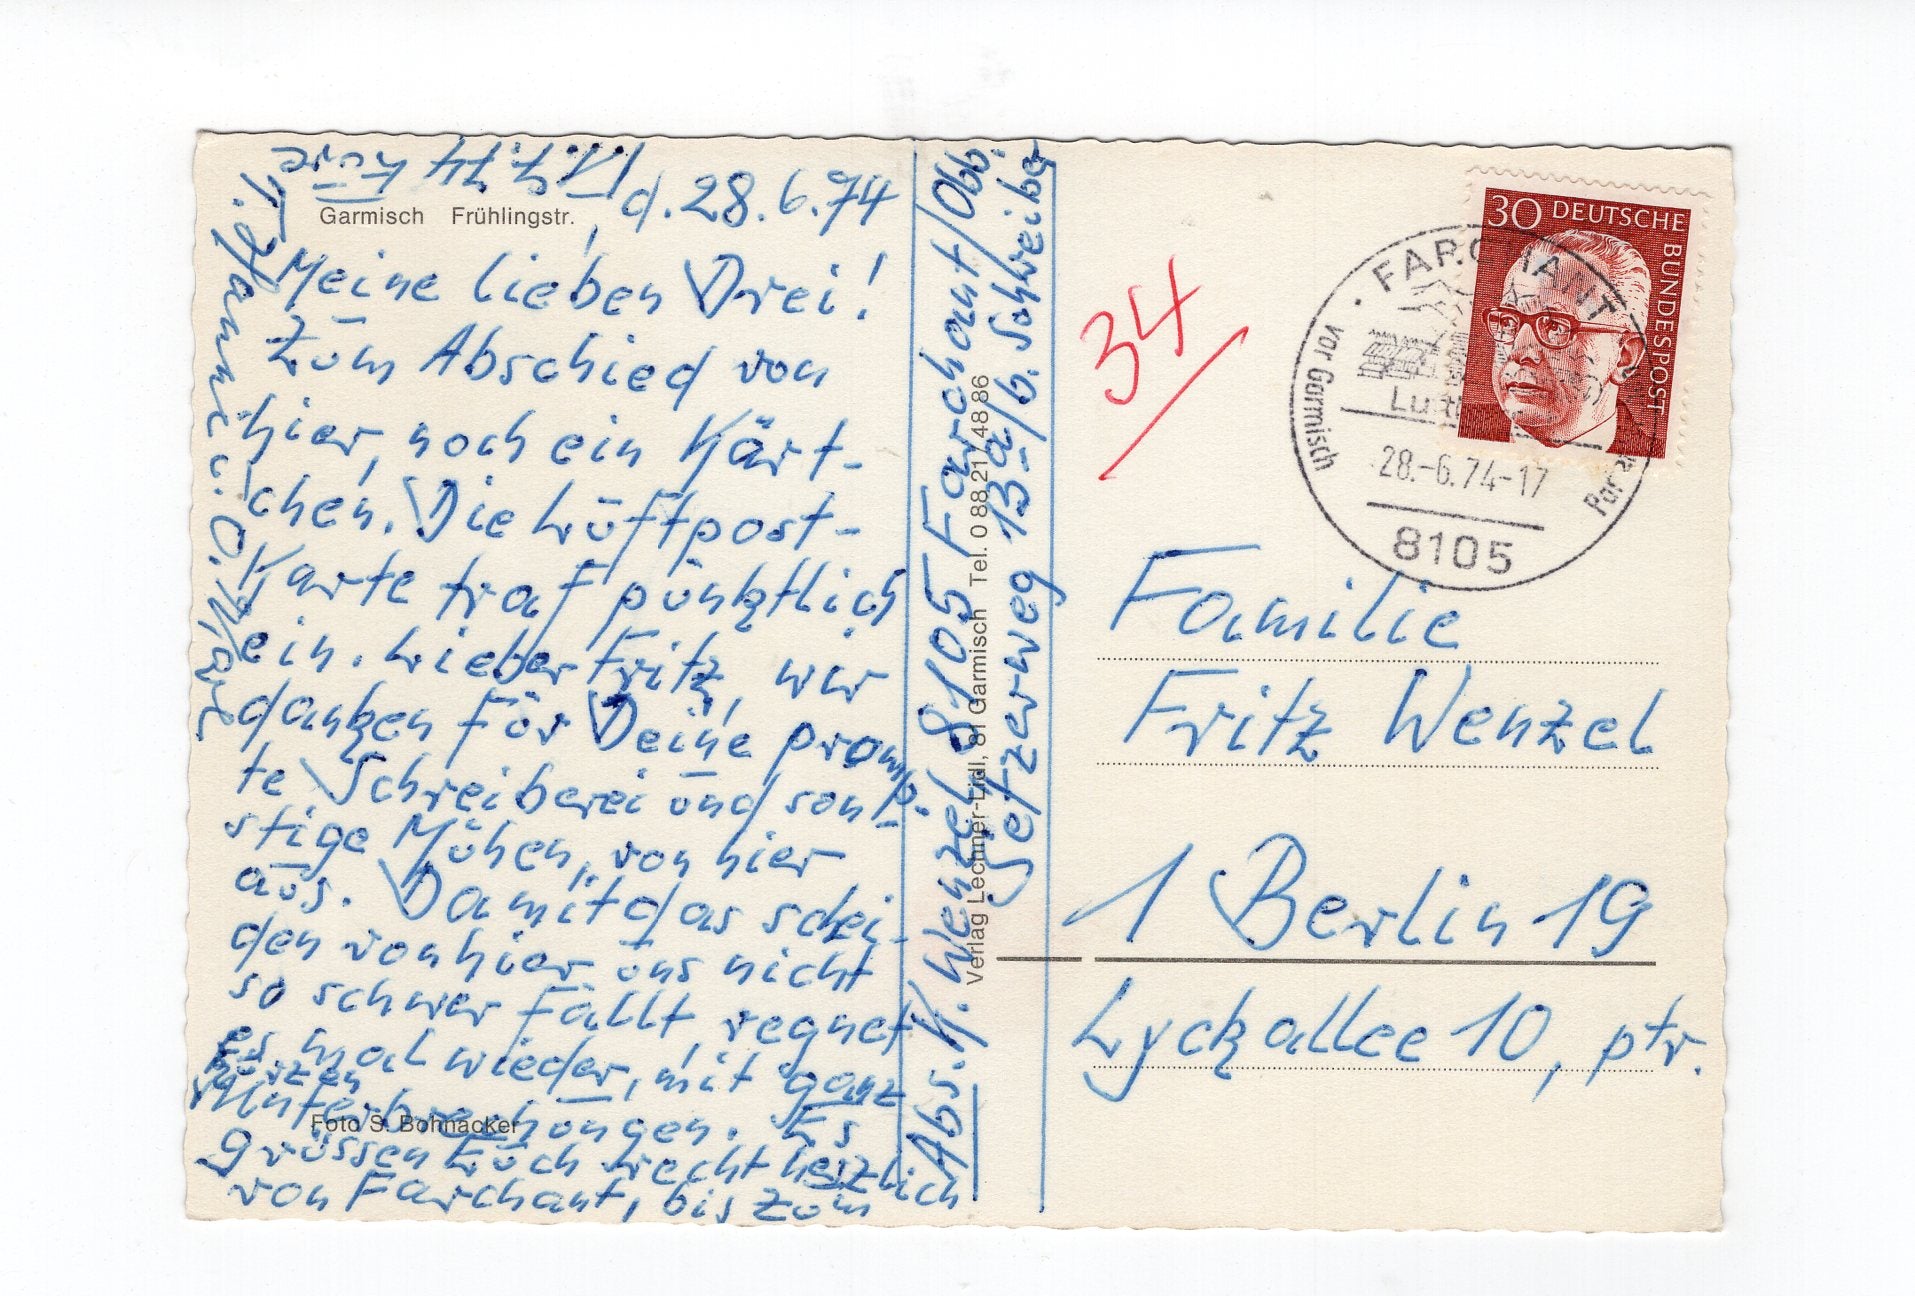 d. 28.6.74
Garmisch Frühlingstr.
Meine lieben Drei!
Zum Abschied von
hier, noch ein Kärt-
chen. Die Luftpost-
Karte traf pünktlich
ein. Lieber Fritz, wir
danken für Deine promp-
te Schreiberei und son-
stige Mühen, von hier
aus. Damit das schei-
den von hier uns nicht
so schwer fällt, regnet
es mal wieder, mit ganz
kurzen
Unterbrechungen. Es
Foto S. Bohnacker
grüssen Euch recht herzlich
von Farchant, bis zum
11.7.74 Eure
T. Hanni u. O. Max
Abs. H. Wenzel 8105 Farchant/Obb.
Setzerweg 13a/b. Schreiber
Verlag Lechner-Lidl, 81 Garmisch Tel. 0 88 21 / 48 86
34
30 DEUTSCHE
BUNDESPOST
FARCHANT
vor Garmisch
28.-6.74-17
8105
Familie
Fritz Wenzel
1 Berlin 19
Lyckallee 10, ptr.